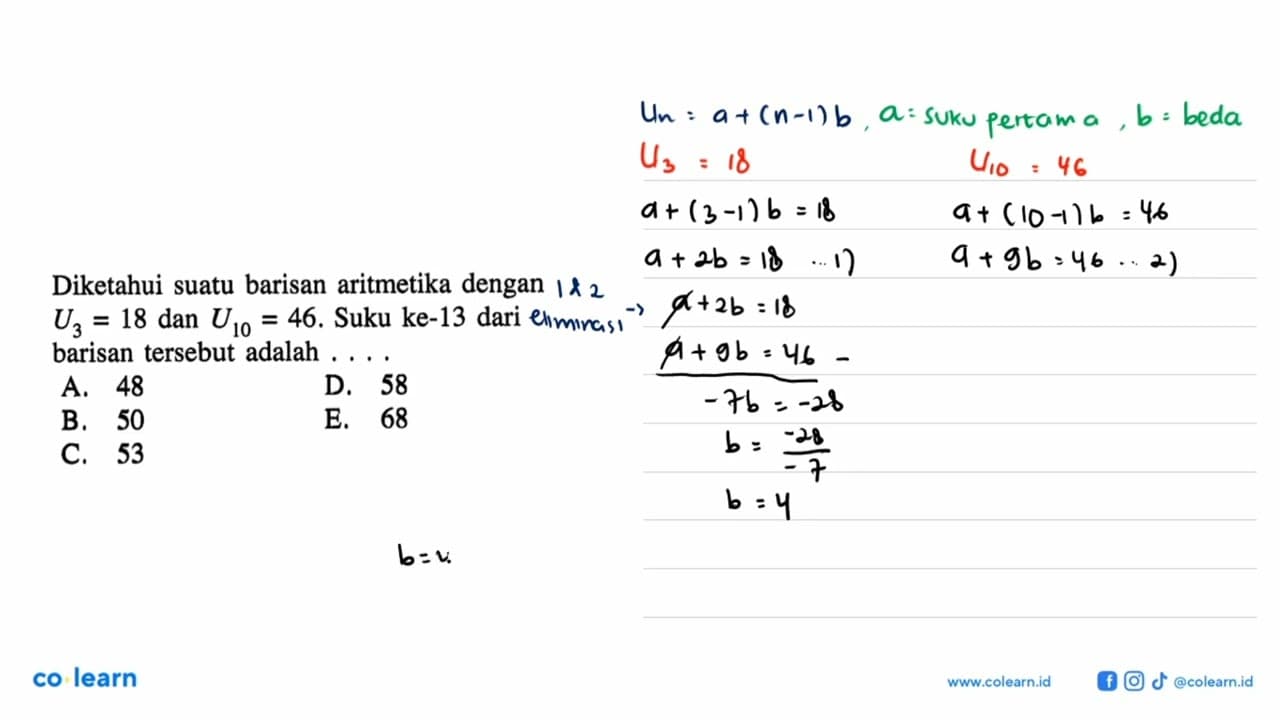 Diketahui suatu barisan aritmetika dengan
U₃ = 18 dan U₁₀ = 46. Suku ke-13 dari
barisan tersebut adalah . . . .
A. 48 D. 58
B. 50 E. 68
C. 53
Un = a + (n-1) b, a = suku pertama, b = beda
U₃ = 18 U₁₀ = 46
a + (3-1) b = 18 a + (10-1) b = 46
a + 2b = 18 ... 1) a + 9b = 46 ... 2)
1 & 2
eliminasi -> a + 2b = 18
a + 9b = 46 -
-7b = -28
b = -28/-7
b = 4
b =
co learn
www.colearn.id @colearn.id